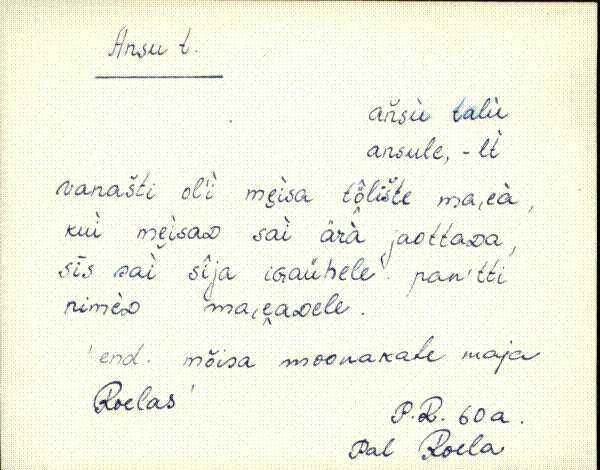 Ansu t.
ańsù talù
ansule, -lt̀
vanašti oĺì mẹìsa tõ̭lište ma,eà,
kuì mẹìsaD saì ärà jaottaDa,
sīs saì sîja iGaühele pań'tti
nimèD ma,ẹaDele.
'end. mõisa moonakate maja
Roelas'
P.R. 60a.
Pal Roela